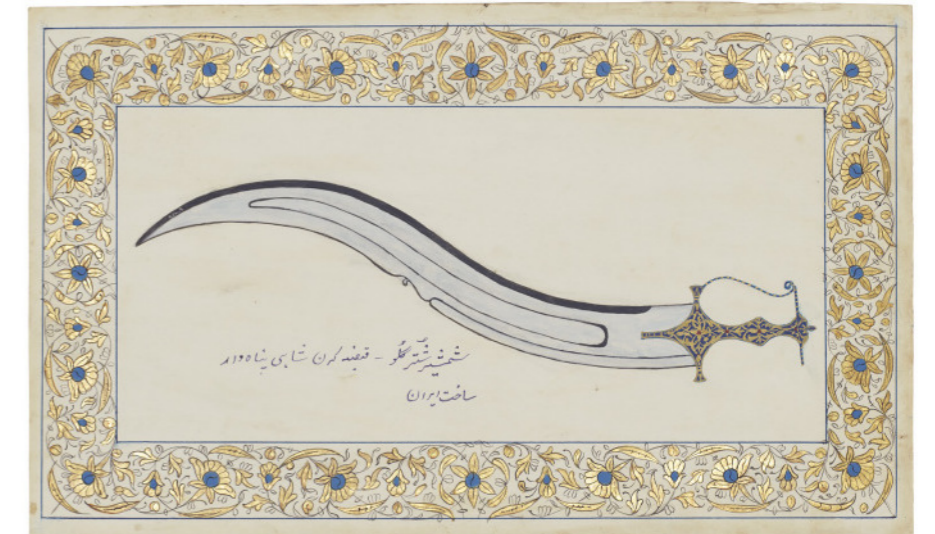 شمشیر شتر گلو - قبضہ کرن شاہی پناہ دار
ساخت ایران